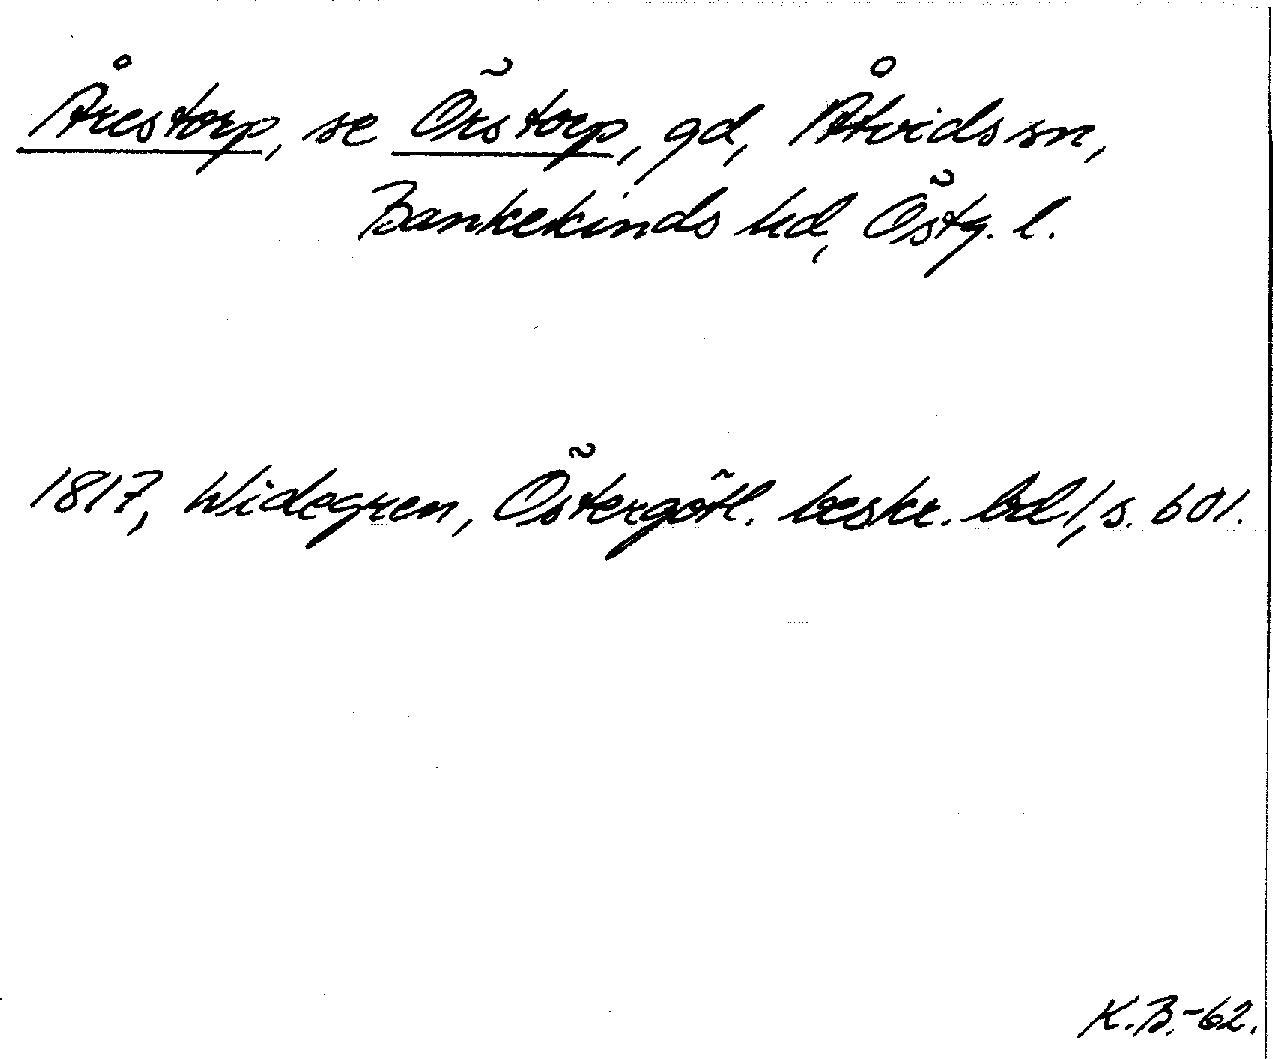 Årestorp, se Örstorp, gd, Åtvids sn,
Bankekinds hd, Östg. l.
1817, Widegren, Östergötl. beskr. bd 1, s. 601.
K.B.-62.